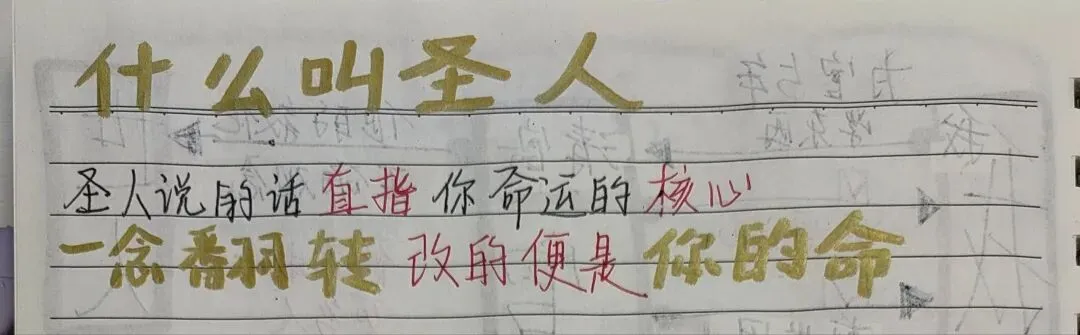 什么叫圣人
圣人说的话直指你命运的核心
一念翻转改的便是你的命